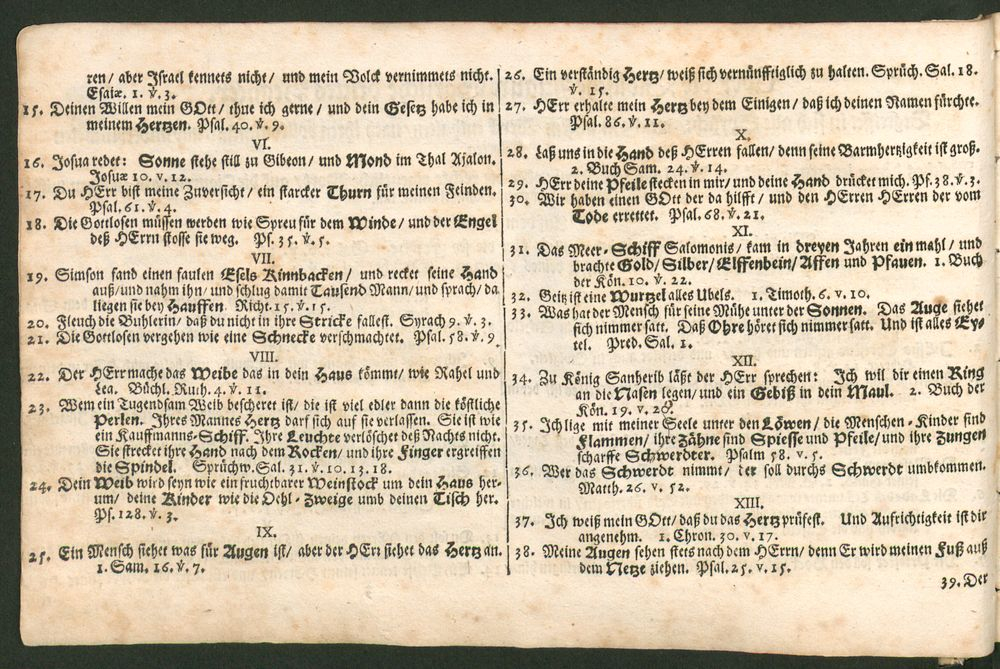 ren/ aber Israel kennets nicht/ und mein Volck vernimmets nicht.
Esaiæ. 1. ℣. 3.
15. Deinen Willen mein GOtt/ thue ich gerne/ und dein Gesetz habe ich in
meinem Hertzen. Psal. 40. ℣. 9.
VI.
16. Josua redet: Sonne stehe still zu Gibeon/ und Mond im Thal Ajalon.
Josuæ 10. v. 12.
17. Du HErr bist meine Zuversicht/ ein starcker Thurn für meinen Feinden.
Psal. 61. ℣. 4.
18. Die Gottlosen müssen werden wie Spreu für dem Winde/ und der Engel
deß HErrn stosse sie weg. Ps. 35. ℣. 5.
VII.
19. Simson fand einen faulen Esels Kinnbacken/ und recket seine Hand
auß/ und nahm ihn/ und schlug damit Tausend Mann/ und sprach/ da
liegen sie bey Hauffen. Richt. 15. ℣. 15.
20. Fleuch die Buhlerin/ daß du nicht in ihre Stricke fallest. Syrach 9. ℣. 3.
21. Die Gottlosen vergehen wie eine Schnecke verschmachtet. Psal. 58. ℣. 9.
VIII.
22. Der HErr mache das Weibe das in dein Haus kömmt/ wie Rahel und
Lea. Büchl. Ruth. 4. ℣. 11.
23. Wem ein Tugendsam Weib bescheret ist/ die ist viel edler dann die köstliche
Perlen. Ihres Mannes Hertz darf sich auf sie verlassen. Sie ist wie
ein Kauffmanns-Schiff. Ihre Leuchte verlöschet deß Nachts nicht.
Sie strecket ihre Hand nach dem Rocken/ und ihre Finger ergreiffen
die Spindel. Sprüchw. Sal. 31. ℣. 10. 13. 18.
24. Dein Weib wird seyn wie ein fruchtbarer Weinstock um dein Haus her-
um/ deine Kinder wie die Oehl-Zweige umb deinen Tisch her.
Ps. 128. ℣. 3.
IX.
25. Ein Mensch siehet was für Augen ist/ aber der HErr siehet das Hertz an.
1. Sam. 16. ℣. 7.
26. Ein verständig Hertz/ weiß sich vernünfftiglich zu halten. Sprüch. Sal. 18.
℣. 15.
27. HErr erhalte mein Hertz bey dem Einigen/ daß ich deinen Namen fürchte.
Psal. 86. ℣. 11.
X.
28. Laß uns in die Hand deß HErren fallen/ denn seine Barmhertzigkeit ist groß.
2. Buch Sam. 24. ℣. 14.
29. HErr deine Pfeile stecken in mir/ und deine Hand drücket mich. Ps. 38. ℣. 3.
30. Wir haben einen GOtt der da hilfft/ und den HErren HErren der vom
Tode errettet. Psal. 68. ℣. 21.
XI.
31. Das Meer-Schiff Salomonis/ kam in dreyen Jahren ein mahl/ und
brachte Gold/ Silber/ Elffenbein/ Affen und Pfauen. 1. Buch
der Kön. 10. ℣. 22.
32. Geitz ist eine Wurtzel alles Ubels. 1. Timoth. 6. v. 10.
33. Was hat der Mensch für seine Mühe unter der Sonnen. Das Auge siehet
sich nimmer satt. Daß Ohre höret sich nimmer satt. Und ist alles Ey-
tel. Pred. Sal. 1.
XII.
34. Zu König Sanherib läßt der HErr sprechen: Ich wil dir einen Ring
an die Nasen legen/ und ein Gebiß in dein Maul. 2. Buch der
Kön. 19. v. 28.
35. Ich lige mit meiner Seele unter den Löwen/ die Menschen-Kinder sind
Flammen/ ihre Zähne sind Spiesse und Pfeile/ und ihre Zungen
scharffe Schwerdter. Psalm 58. v. 5.
36. Wer das Schwerdt nimmt/ der soll durchs Schwerdt umbkommen.
Matth. 26. v. 52.
XIII.
37. Ich weiß mein GOtt/ daß du das Hertz prüfest. Und Aufrichtigkeit ist dir
angenehm. 1. Chron. 30. v. 17.
38. Meine Augen sehen stets nach dem HErrn/ denn Er wird meinen Fuß auß
dem Netze ziehen. Psal. 25. v. 15.
39. Der